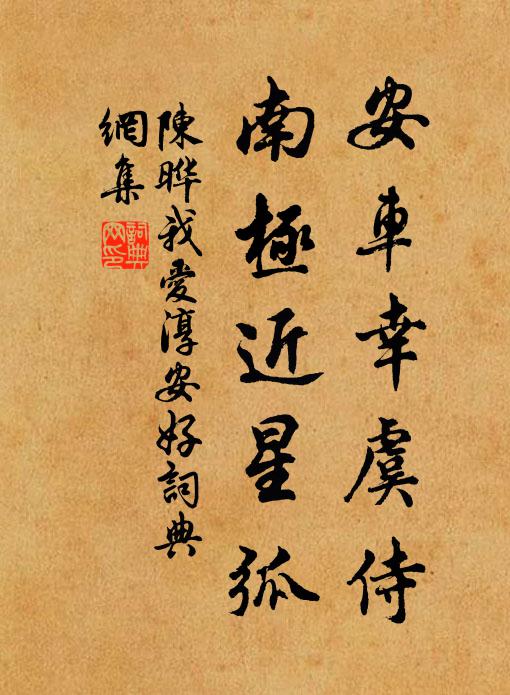 安車幸虞侍
南極近星弧
陳晔我愛淳安好詞典
網集
詞典網印